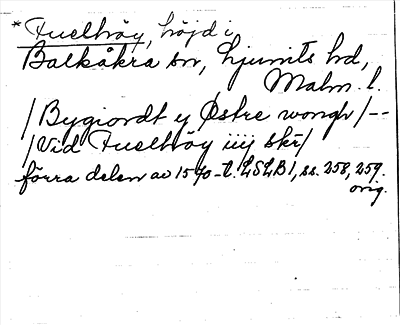 * Fuelhöy, höjd i
Balkåkra sn, Ljunits hd,
Malm. l.
/Bygiordt y Østre wongh/--
/Vid Fuelhöy iiij skr/
förra delen av 1570-t. LSLB1, ss. 258, 259.
orig.